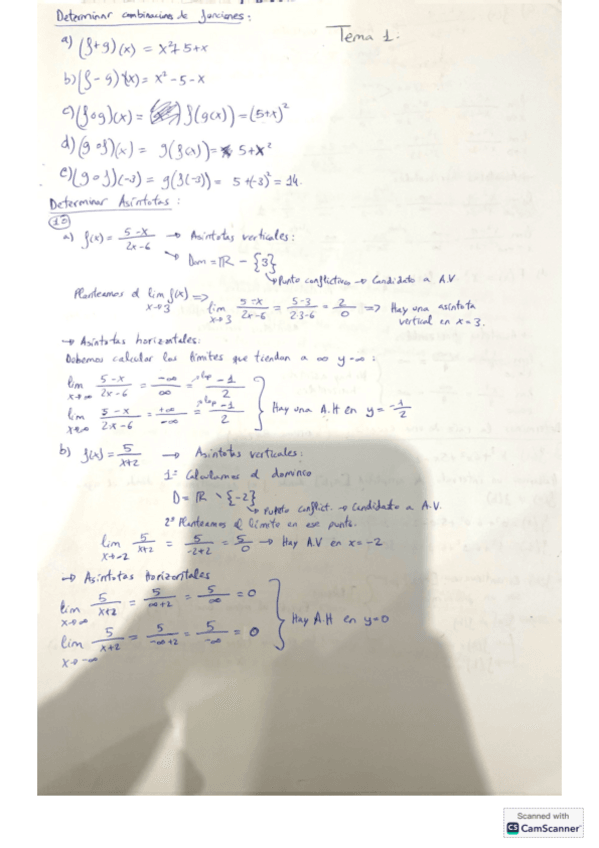 Determinar combinaciones de funciones:
Tema 1.
a) (f+g)(x) = x²+5+x
b) (f-g)(x) = x²-5-x
c) (f∘g)(x) = f(g(x)) = (5+x)²
d) (g∘f)(x) = g(f(x)) = 5+x²
e) (g∘f)(-3) = g(f(-3)) = 5+(-3)² = 14.
Determinar Asíntotas:
1º
a) f(x) = 5-x / 2x-6 → Asíntotas verticales:
→ Dom = ℝ - {3}
→ Punto conflictivo → Candidato a A.V
Planteamos el lim x→3 f(x) => lim x→3 5-x / 2x-6 = 5-3 / 2·3-6 = 2/0 => Hay una asíntota
vertical en x=3.
→ Asíntotas horizontales:
Debemos calcular los límites que tiendan a ∞ y -∞:
lim x→∞ 5-x / 2x-6 = -∞/∞ = -1/2
lim 5-x / 2x-6 = +∞/-∞ = -1/2 } Hay una A.H en y = -1/2
b) f(x) = 5 / x+2 → Asíntotas verticales:
1º Calculamos el dominio
D = ℝ \ {-2}
→ Punto conflict. → Candidato a A.V.
2º Planteamos el límite en ese punto.
lim x→-2 5 / x+2 = 5 / -2+2 = 5/0 → Hay A.V en x=-2
→ Asíntotas horizontales
lim x→∞ 5 / x+2 = 5 / ∞+2 = 5/∞ = 0
lim x→-∞ 5 / x+2 = 5 / -∞+2 = 5/-∞ = 0 } Hay A.H en y=0
Scanned with
CS CamScanner